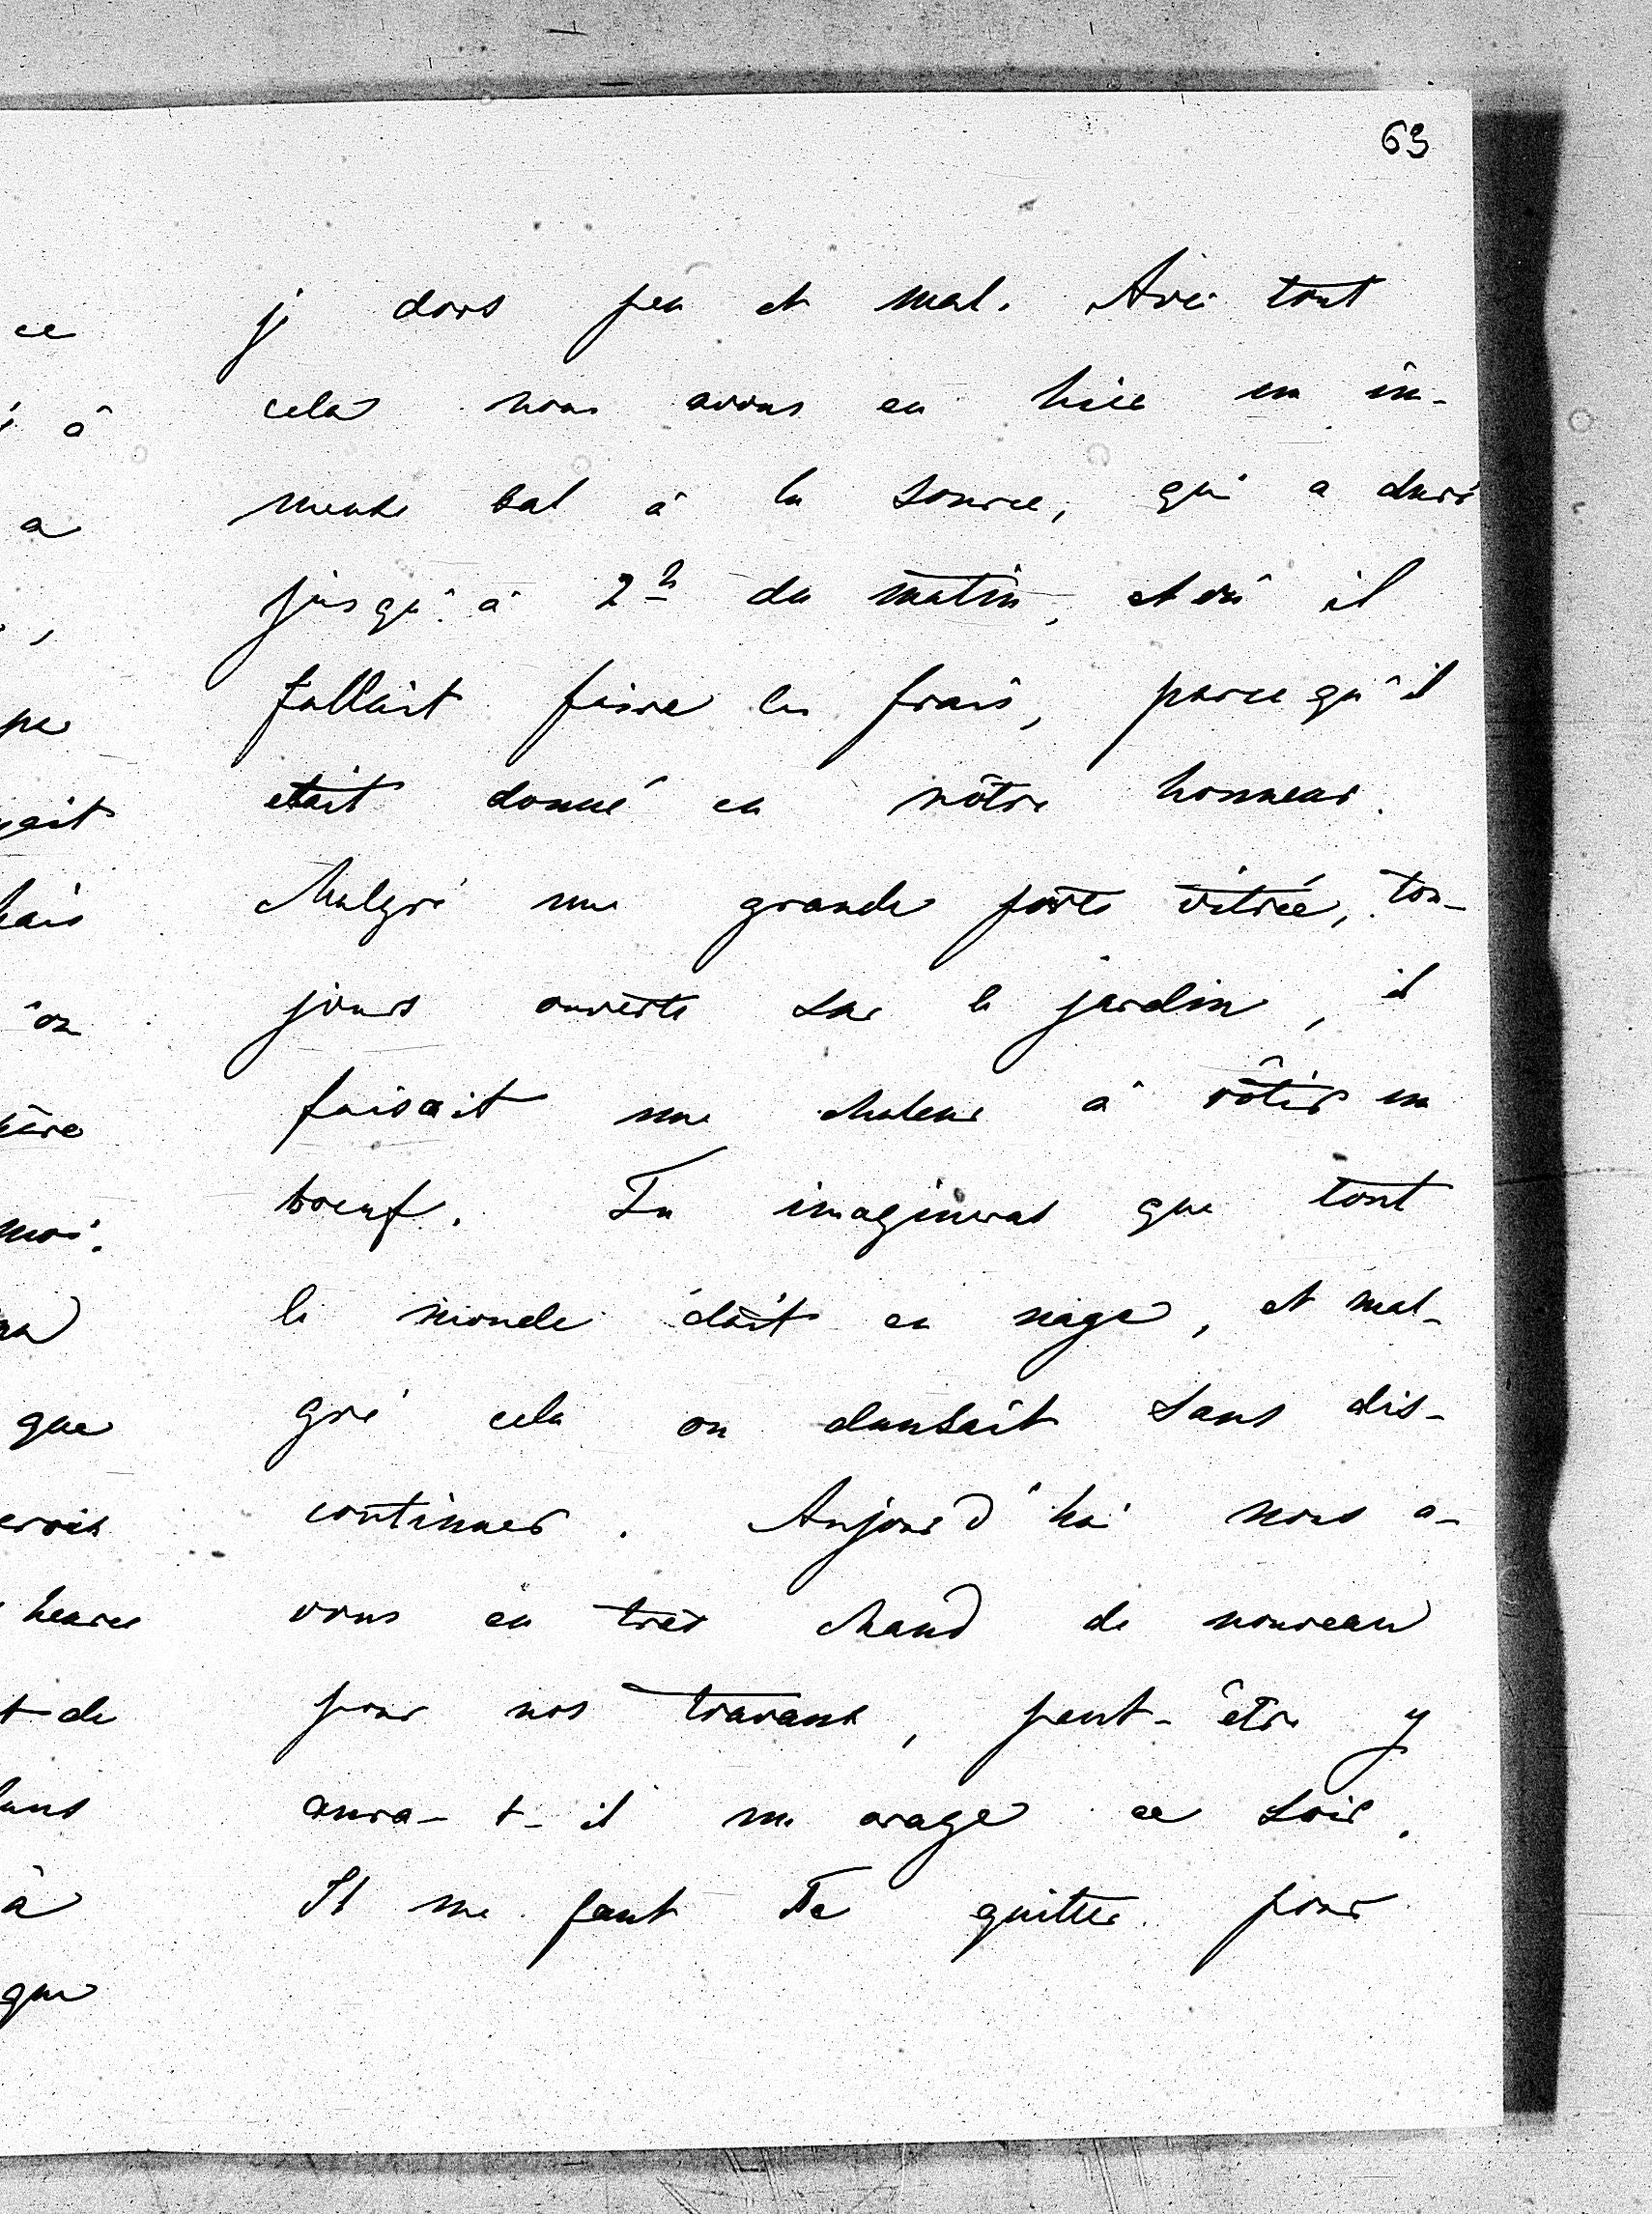 63
je dors peu et mal. Avec tout
cela nous avons eu hier un im-
mense bal à la source, qui a duré
jusqu'à 2h du matin, et où il
fallait faire les frais, parce qu'il
etait donné en nôtre honneur.
Malgré une grande porte vitrée, tou-
jours ouverte sur le jardin, il
faisait une chaleur à rôtir un
boeuf. Tu imagineras que tout
le monde était en nage, et mal-
gré cela on dansait sans dis-
continuer. Aujourd'hui nous a-
vons eu très chaud de nouveau
pour nos travaux, peut-être y
aura-t-il un orage ce soir.
Il me faut te quitter pour
ce
à
a
pe
ait
on
moi.
que
heures
t de
à
que